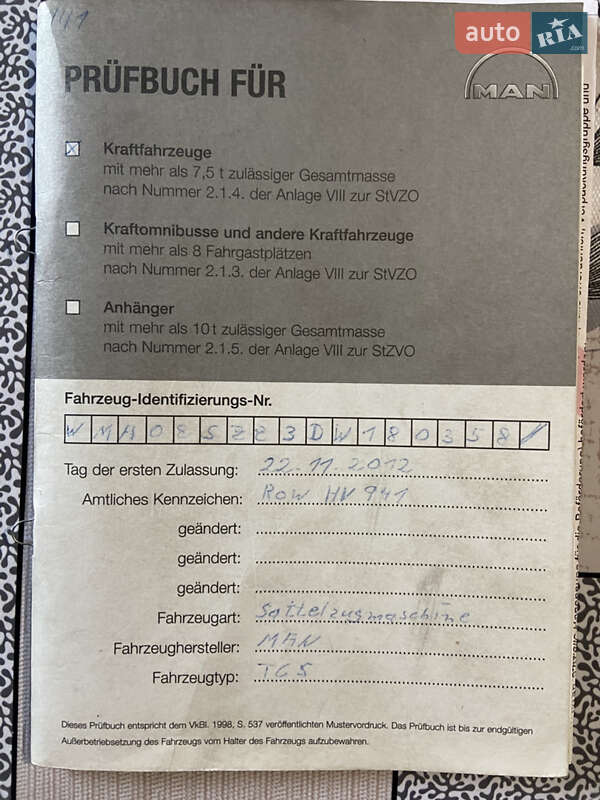 441
auto RIA.com
PRÜFBUCH FÜR
MAN
x Kraftfahrzeuge
mit mehr als 7,5 t zulässiger Gesamtmasse
nach Nummer 2.1.4. der Anlage VIII zur StVZO
Kraftomnibusse und andere Kraftfahrzeuge
mit mehr als 8 Fahrgastplätzen
nach Nummer 2.1.3. der Anlage VIII zur StVZO
Anhänger
mit mehr als 10 t zulässiger Gesamtmasse
nach Nummer 2.1.5. der Anlage VIII zur StZVO
Fahrzeug-Identifizierungs-Nr.
WMA08SZZ3DW180358/
Tag der ersten Zulassung: 22.11.2012
Amtliches Kennzeichen: ROW HV 941
geändert:
geändert:
geändert:
Fahrzeugart: Sattelzugmaschine
Fahrzeughersteller: MAN
Fahrzeugtyp: TGS
Dieses Prüfbuch entspricht dem VkBl. 1998, S. 537 veröffentlichten Mustervordruck. Das Prüfbuch ist bis zur endgültigen
Außerbetriebsetzung des Fahrzeugs vom Halter des Fahrzeugs aufzubewahren.